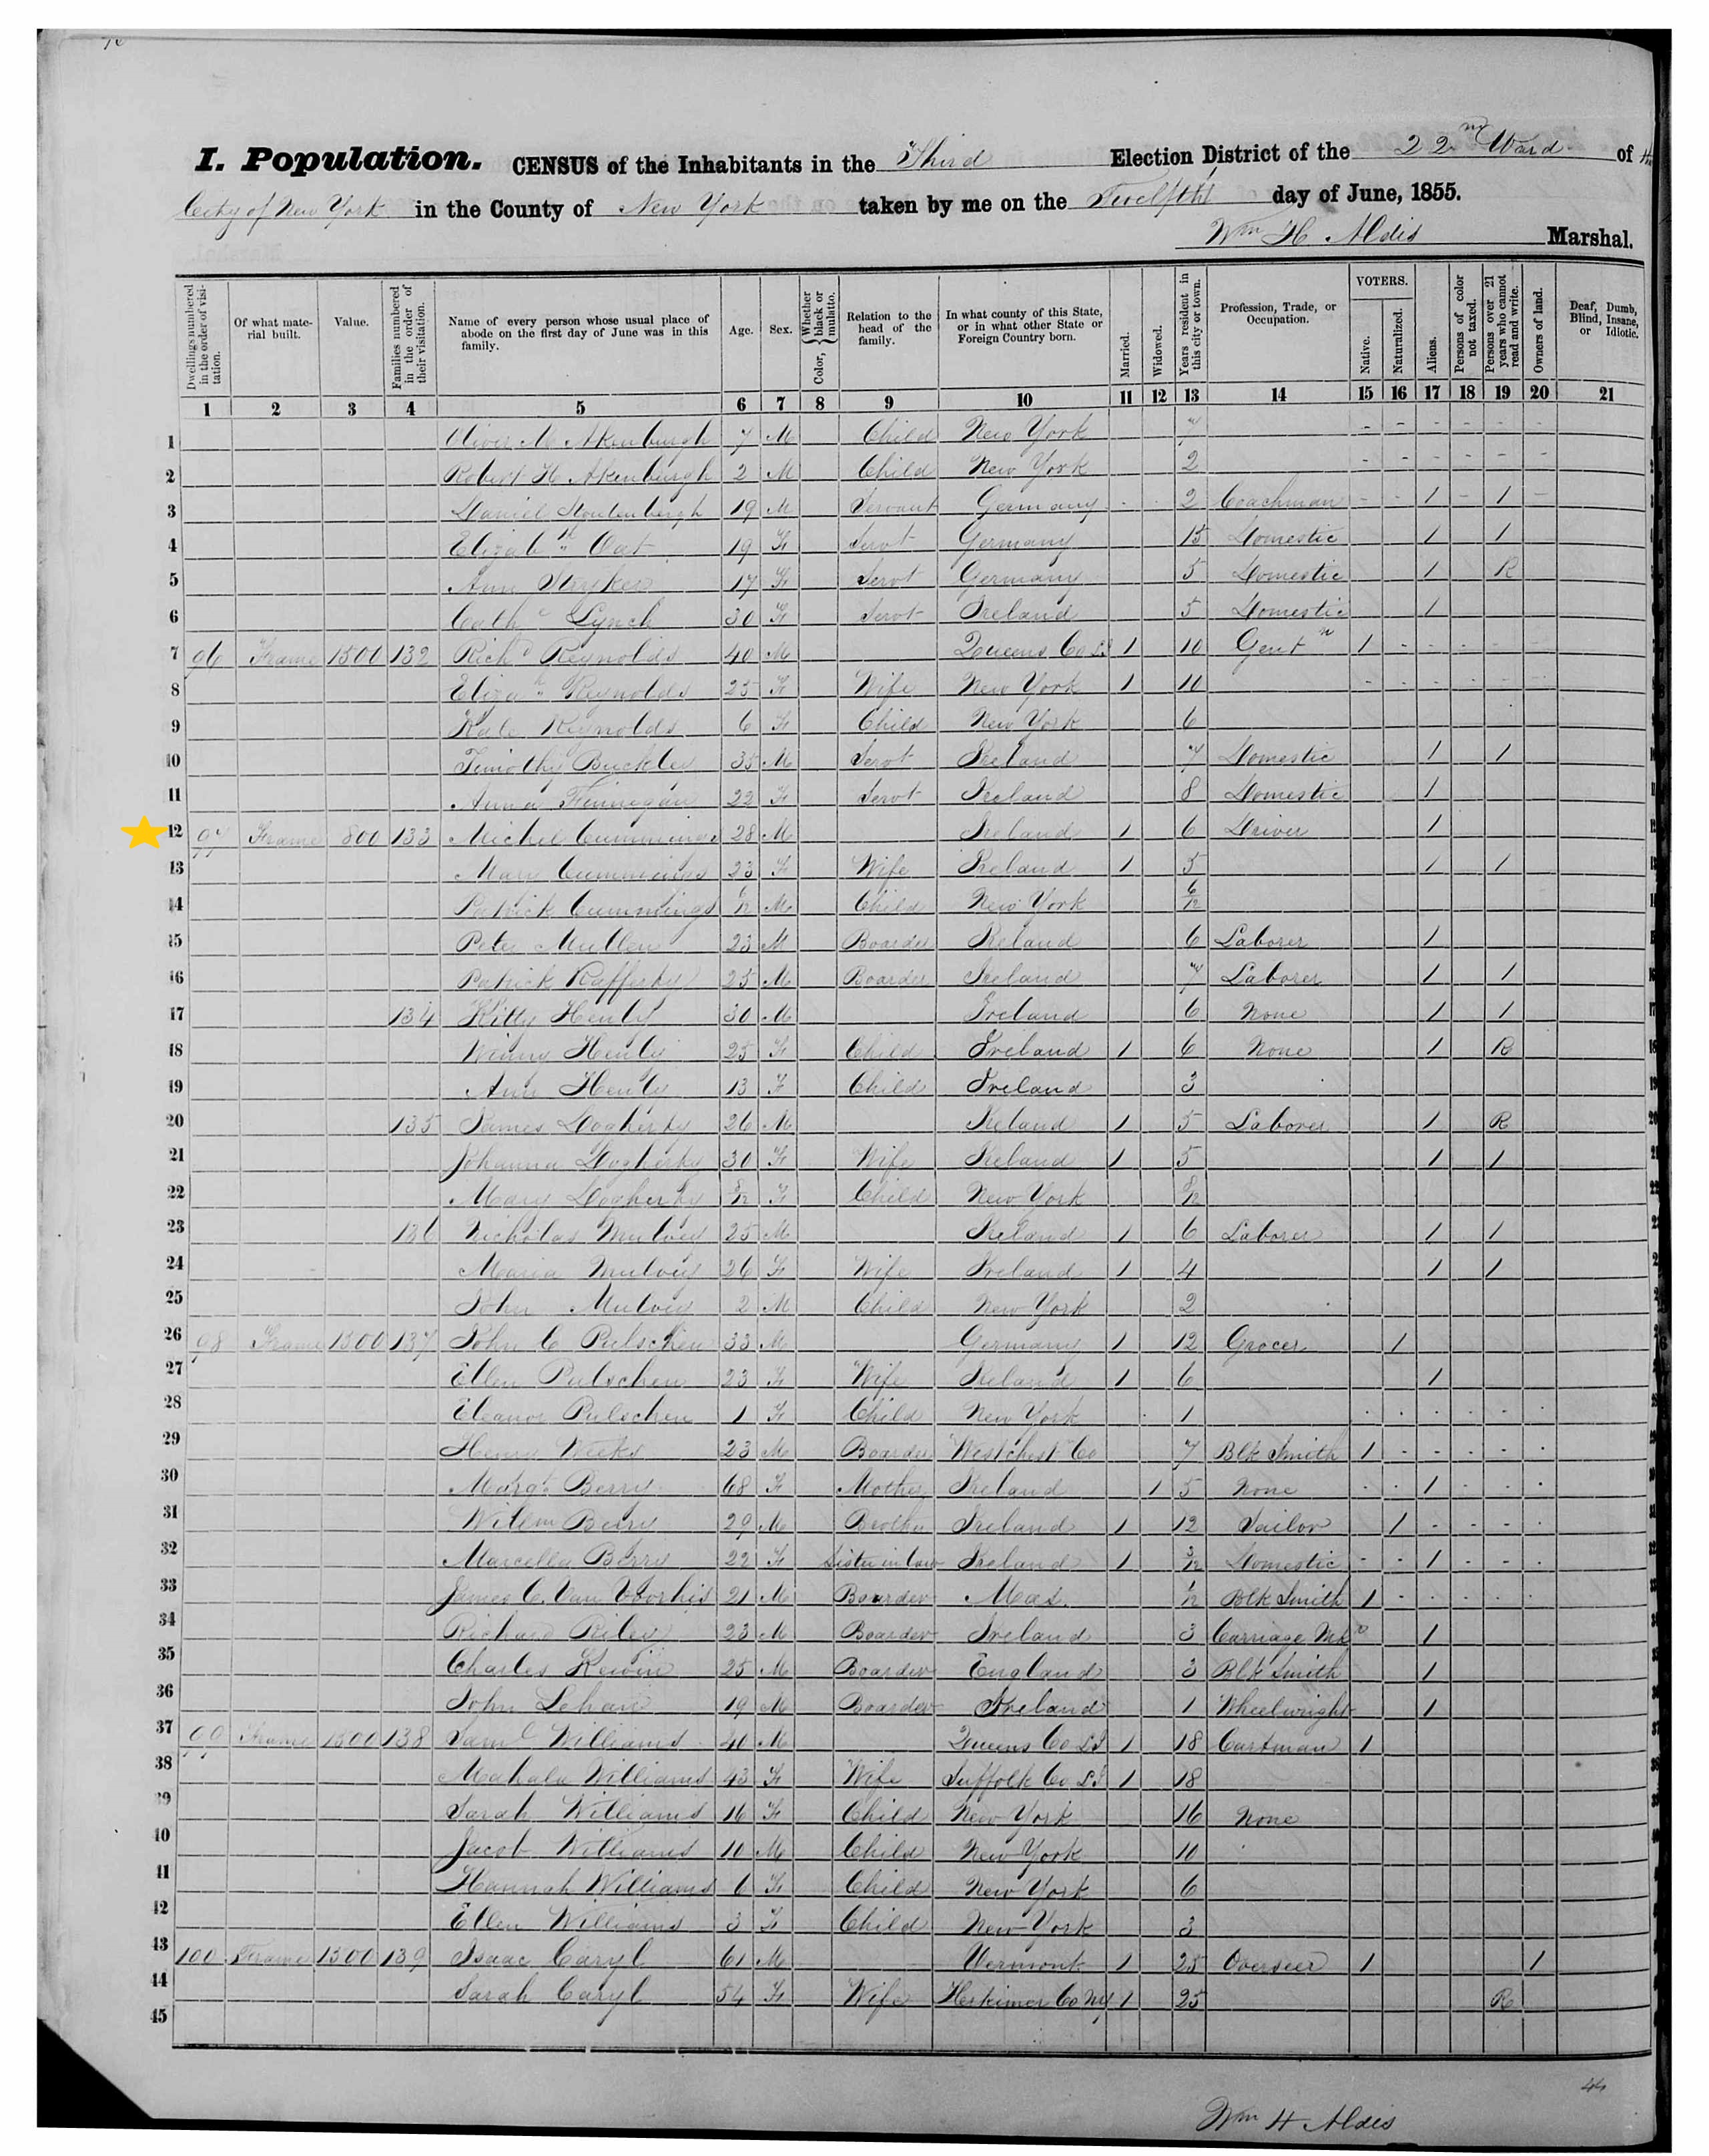 I. Population. CENSUS of the Inhabitants in the Third Election District of the 22nd Ward of the
City of New York in the County of New York taken by me on the Twelfth day of June, 1855.
Wm H Aldis Marshal.
Dwellings numbered in the order of visitation. Of what material built. Value. Families numbered in the order of their visitation. Name of every person whose usual place of abode on the first day of June was in this family. Age. Sex. Color, { Whether black or mulatto. Relation to the head of the family. In what county of this State, or in what other State or Foreign Country born. Married. Widowed. Years resident in this city or town. Profession, Trade, or Occupation. VOTERS. Native. Naturalized. Aliens. Persons of color not taxed. Persons over 21 years who cannot read and write. Owners of land. Deaf, Dumb, Blind, Insane, or Idiotic.
1 2 3 4 5 6 7 8 9 10 11 12 13 14 15 16 17 18 19 20 21
1 Oliver M Akenburgh 7 M Child New York 7
2 Robert H Akenburgh 2 M Child New York 2
3 Daniel Stoutenburgh 19 M Servant Germany 2 Coachman 1 1
4 Elizabth Oat 19 F Servt Germany 15 Domestic 1 1
5 Ann Stryker 17 F Servt Germany 5 Domestic 1 R
6 Cathe Lynch 30 F Servt Ireland 5 Domestic 1
7 96 Frame 1500 132 Richd Reynolds 40 M Queens Co LI 1 10 Gentn 1
8 Elizah Reynolds 25 F Wife New York 1 10
9 Kate Reynolds 6 F Child New York 6
10 Timothy Buckley 35 M Servt Ireland 7 Domestic 1 1
11 Anna Finnegan 22 F Servt Ireland 8 Domestic 1
12 97 Frame 800 133 Michel Cummings 28 M Ireland 1 6 Driver 1
13 Mary Cummings 23 F Wife Ireland 1 5 1 1
14 Patrick Cummings 6/12 M Child New York 6/12
15 Peter Mullen 23 M Boarder Ireland 6 Laborer 1
16 Patrick Rafferty 25 M Boarder Ireland 7 Laborer 1 1
17 134 Kitty Henly 30 M Ireland 6 None 1 1
18 Winny Henly 25 F Child Ireland 1 6 None 1 R
19 Ann Henly 13 F Child Ireland 3
20 135 James Dogherty 26 M Ireland 1 5 Laborer 1 R
21 Johanna Dogherty 30 F Wife Ireland 1 5 1 1
22 Mary Dogherty 8/12 F Child New York 8/12
23 136 Nicholas Mulvey 25 M Ireland 1 6 Laborer 1 1
24 Maria Mulvey 26 F Wife Ireland 1 4 1 1
25 John Mulvey 2 M Child New York 2
26 98 Frame 1500 137 John C Pulschen 33 M Germany 1 12 Grocer 1
27 Ellen Pulschen 23 F Wife Ireland 1 6 1
28 Eleanor Pulschen 1 F Child New York 1
29 Henry Weeks 23 M Boarder Westchest Co 7 Blk Smith 1
30 Margt Berry 68 F Mother Ireland 1 5 None 1
31 Willm Berry 29 M Brother Ireland 1 12 Tailor 1
32 Marcella Berry 22 F Sister in law Ireland 1 3/12 Domestic 1
33 James C. Van Voorhis 21 M Boarder Mas. 1/12 Blk Smith 1
34 Richard Riley 23 M Boarder Ireland 3 Carriage Mkr 1
35 Charles Kewin 25 M Boarder England 3 Blk Smith 1
36 John Lehan 19 M Boarder Ireland 1 Wheelwright 1
37 99 Frame 1500 138 Saml Williams 40 M Queens Co LI 1 18 Cartman 1
38 Mahala Williams 43 F Wife Suffolk Co LI 1 18
39 Sarah Williams 16 F Child New York 16 None
40 Jacob Williams 10 M Child New York 10
41 Hannah Williams 6 F Child New York 6
42 Ellen Williams 3 F Child New York 3
43 100 Frame 1500 139 Isaac Caryl 61 M Vermont 1 25 Overseer 1 1
44 Sarah Caryl 54 F Wife Herkimer Co NY 1 25 R
45
44
Wm H Aldis